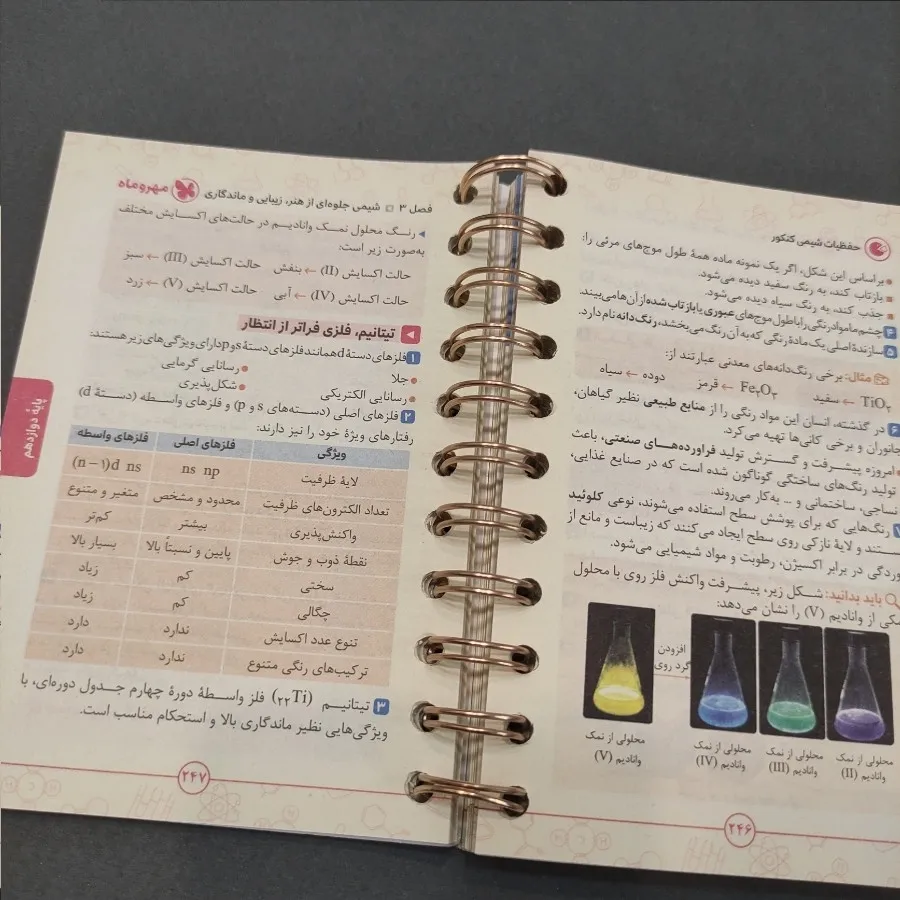 حفظیات شیمی کنکور
براساس این شکل، اگر یک نمونه ماده همهٔ طول موج‌های مرئی را:
بازتاب کند، به رنگ سفید دیده می‌شود.
جذب کند، به رنگ سیاه دیده می‌شود.
۴ چشم ما مواد رنگی را با طول موج‌های عبوری یا بازتاب شده از آن‌ها می‌بیند.
۵ سازندهٔ اصلی یک مادهٔ رنگی که به آن رنگ می‌بخشد، رنگ‌دانه نام دارد.
مثال: برخی رنگ‌دانه‌های معدنی عبارتند از:
TiO₂ ← سفید Fe₂O₃ ← قرمز دوده ← سیاه
۶ در گذشته، انسان این مواد رنگی را از منابع طبیعی نظیر گیاهان،
جانوران و برخی کانی‌ها تهیه می‌کرد.
امروزه پیشرفت و گسترش تولید فراورده‌های صنعتی، باعث
تولید رنگ‌های ساختگی گوناگون شده است که در صنایع غذایی،
نساجی، ساختمانی و ... به‌کار می‌روند.
۷ رنگ‌هایی که برای پوشش سطح استفاده می‌شوند، نوعی کلوئید
هستند و لایهٔ نازکی روی سطح ایجاد می‌کنند که زیباست و مانع از
خوردگی در برابر اکسیژن، رطوبت و مواد شیمیایی می‌شود.
باید بدانید: شکل زیر، پیشرفت واکنش فلز روی با محلول
نمکی از وانادیم (V) را نشان می‌دهد:
افزودن
گرد روی
محلولی از نمک
وانادیم (II)
محلولی از نمک
وانادیم (III)
محلولی از نمک
وانادیم (IV)
محلولی از نمک
وانادیم (V)
۲۴۶
فصل ۳ شیمی جلوه‌ای از هنر، زیبایی و ماندگاری مهروماه
رنگ محلول نمک وانادیم در حالت‌های اکسایش مختلف
به‌صورت زیر است:
حالت اکسایش (II) ← بنفش حالت اکسایش (III) ← سبز
حالت اکسایش (IV) ← آبی حالت اکسایش (V) ← زرد
تیتانیم، فلزی فراتر از انتظار
۱ فلزهای دستهٔ d همانند فلزهای دستهٔ s و p دارای ویژگی‌های زیر هستند:
جلا رسانایی گرمایی
رسانایی الکتریکی شکل‌پذیری
۲ فلزهای اصلی (دسته‌های s و p) و فلزهای واسطه (دستهٔ d)
رفتارهای ویژهٔ خود را نیز دارند:
ویژگی فلزهای اصلی فلزهای واسطه
لایهٔ ظرفیت ns np (n − ۱)d ns
تعداد الکترون‌های ظرفیت محدود و مشخص متغیر و متنوع
واکنش‌پذیری بیشتر کم‌تر
نقطهٔ ذوب و جوش پایین و نسبتاً بالا بسیار بالا
سختی کم زیاد
چگالی کم زیاد
تنوع عدد اکسایش ندارد دارد
ترکیب‌های رنگی متنوع ندارد دارد
۳ تیتانیم (₂₂Ti) فلز واسطهٔ دورهٔ چهارم جدول دوره‌ای، با
ویژگی‌هایی نظیر ماندگاری بالا و استحکام مناسب است.
پایهٔ دوازدهم
۲۴۷